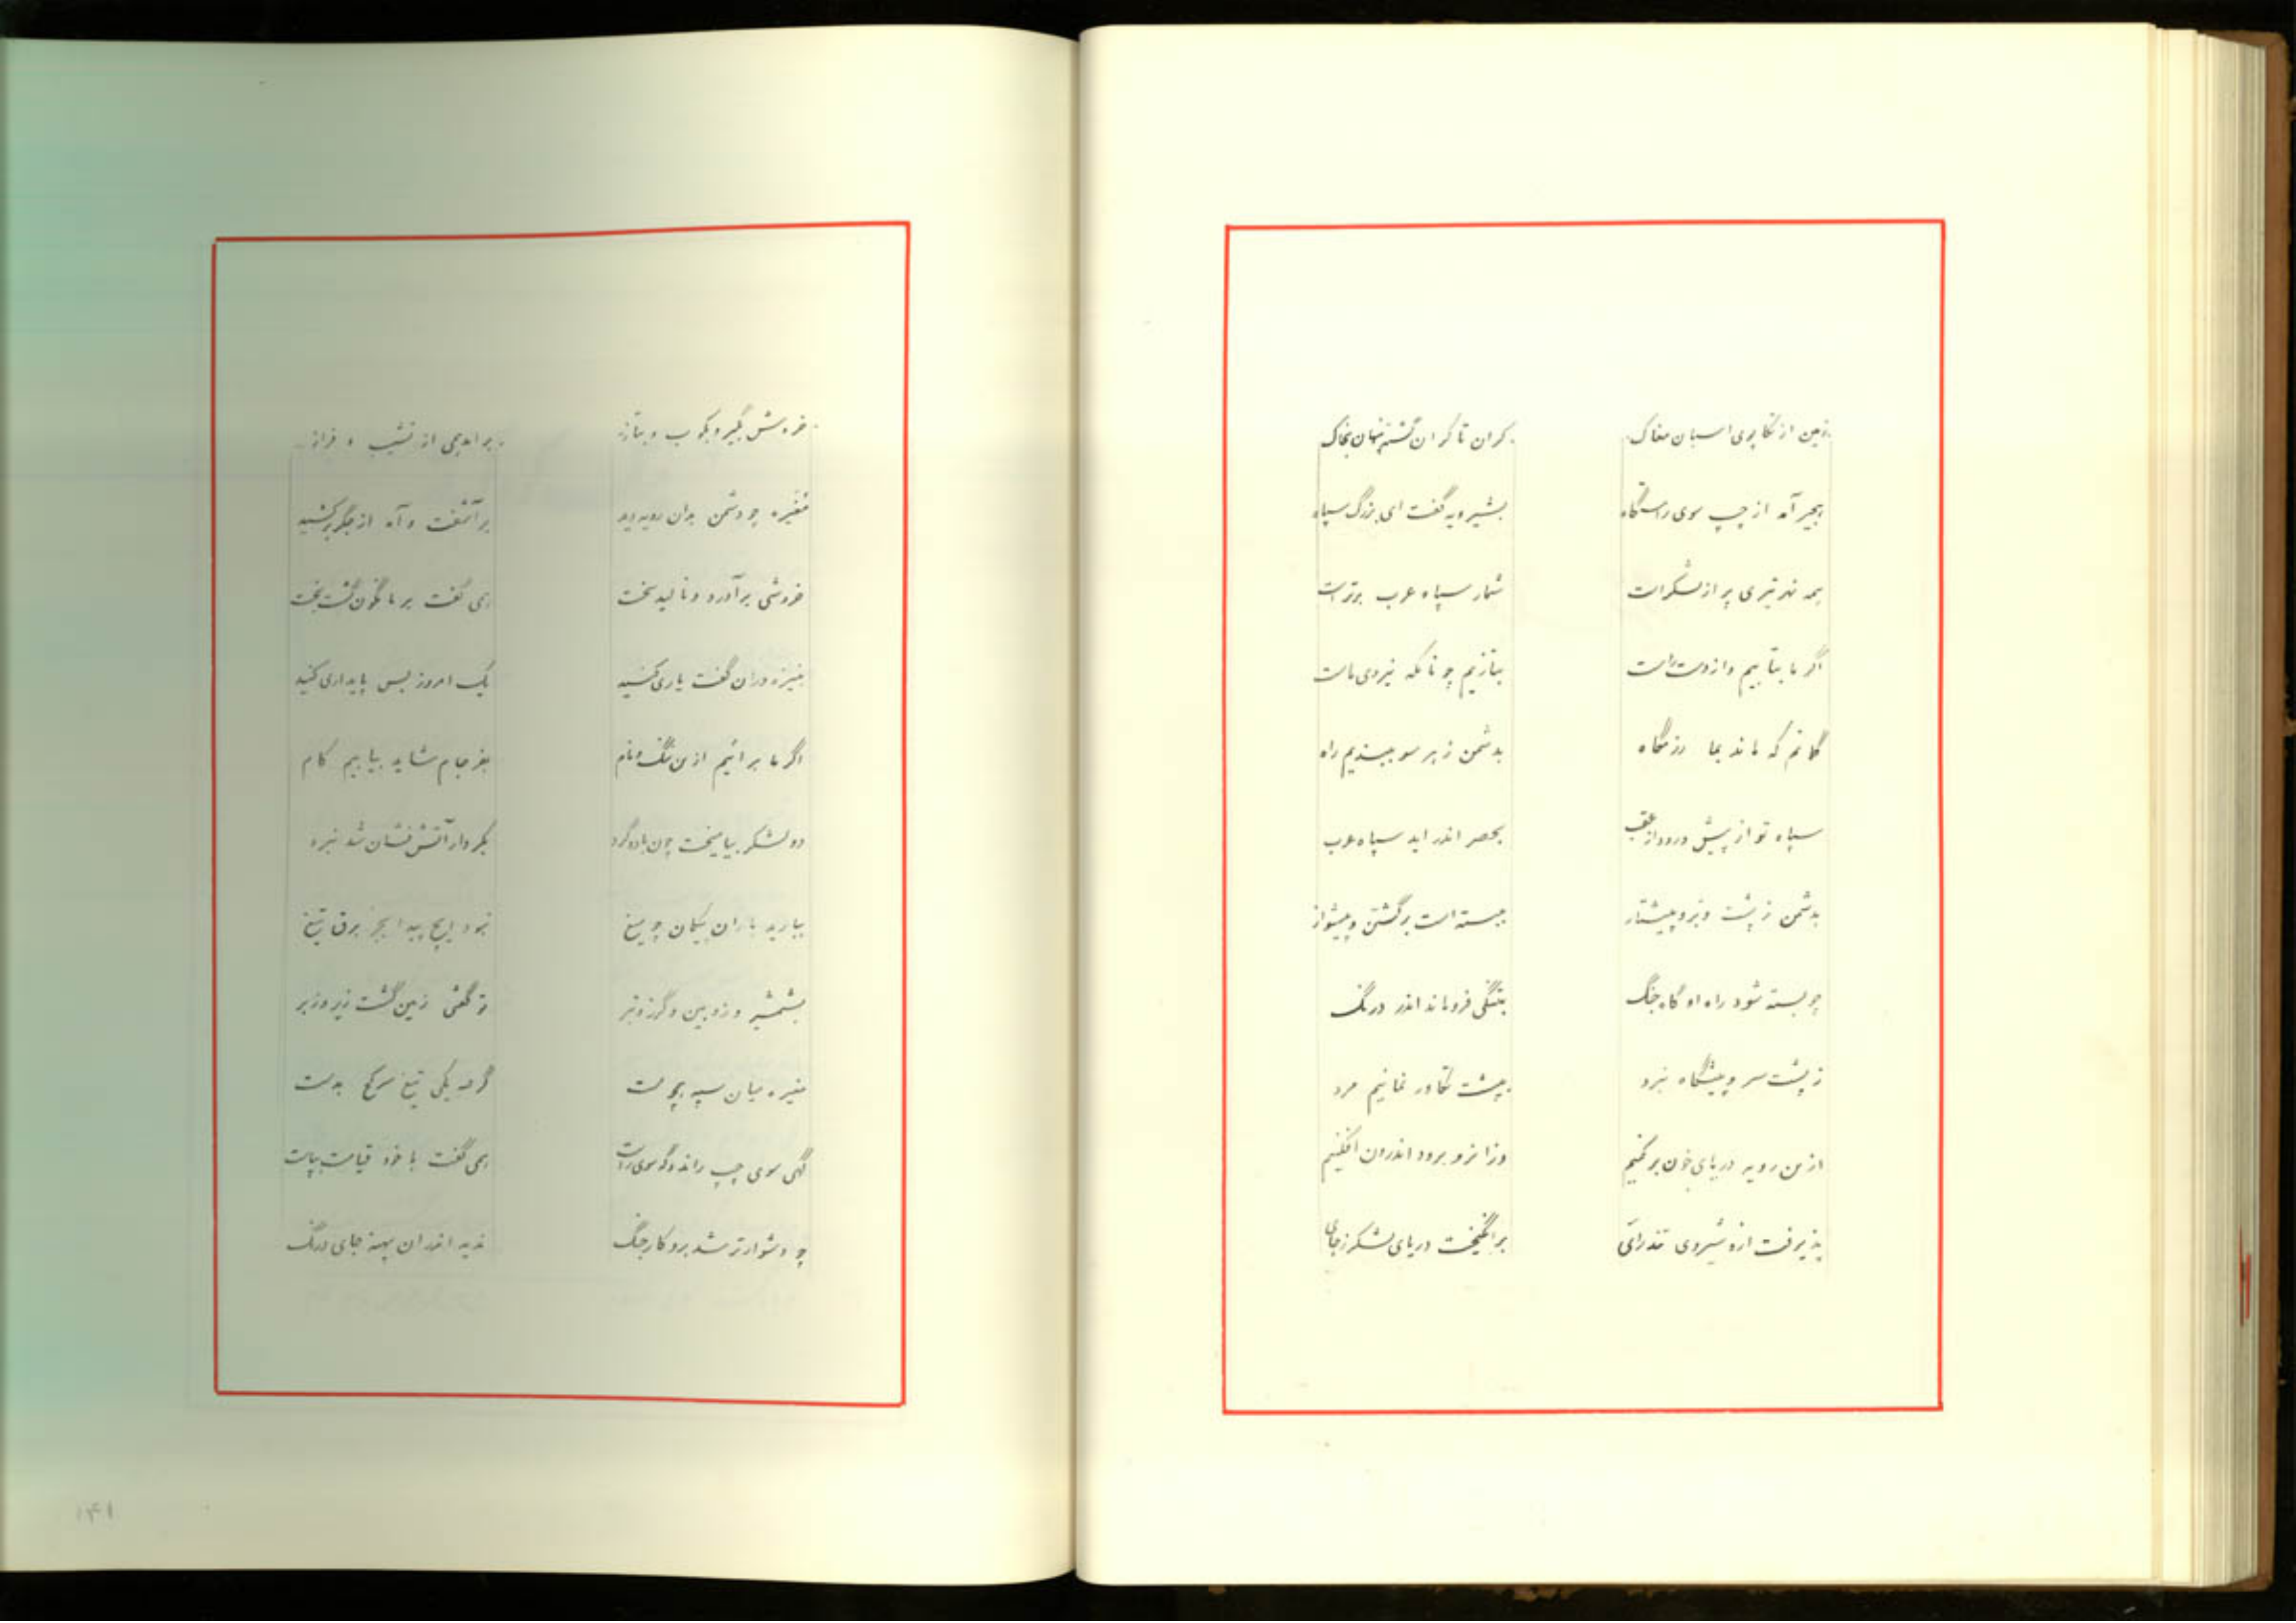 زمین از تکاپوی اسبان مغاک کران تا کران گشته پنهان بخاک
بجیر آمد از چپ سوی راستگاه بشیرویه گفت ای بزرگ سپاه
همه نهر تیری پر از لشکر است شمار سپاه عرب برتر است
اگر ما بتابیم و از دست راست بتازیم چونانکه نیروی ماست
گمانم که ماند بما رزمگاه بدشمن ز هر سو ببندیم راه
سپاه تو از پیش و رود از عقب بحصر اندر اید سپاه عرب
بدشمن ز پشت و بر و پیشتاز ببسته است برگشتن و پیشواز
چو بسته شود راه او گاه جنگ بتنگی فرو ماند اندر درنگ
ز پشت سر و پیشگاه نبرد بپشت تکاور نمانیم مرد
ازین رویه دریای خون بر کنیم وزانرو برود اندرون افکنیم
پذیرفت ازو شیروی تند رای برانگیخت دریای لشکر ز جای
خروش بگیر و بکوب و بتاز برامد همی از نشیب و فراز
مغیره چو دشمن بدان رویه دید برآشفت و آه از جگر برکشید
خروشی برآورد و نالید سخت همی گفت بر ما نگون گشت بخت
بنیزه وران گفت یاری کنید یک امروز بس پایداری کنید
اگر ما برائیم ازین ننگ و نام بفرجام شاید بیابیم کام
دو لشکر بیامیخت چون باد و گرد بکردار آتش فشان شد نبرد
ببارید باران پیکان چو میغ نبود ایچ پیدا بجز برق تیغ
بشمشیر و زوبین و گرز و تبر تو گفتی زمین گشت زیر و زبر
مغیره میان سپه همچو مست گرفته یکی تیغ سرکج بدست
گهی سوی چپ راند و گه سوی راست همی گفت با خود قیامت بپاست
چو دشوارتر شد برو کار جنگ ندید اندر ان پهنه جای درنگ
۱۴۱